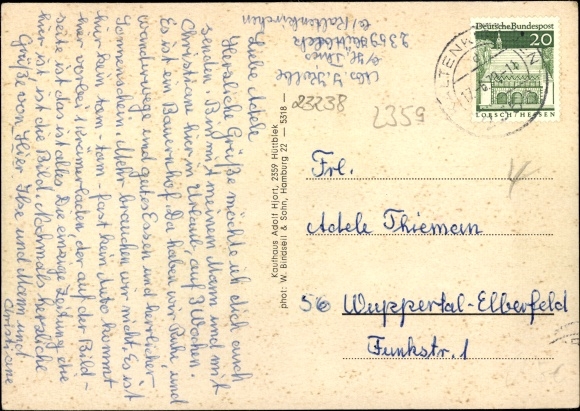 Abs. J. Kolbe
b/H. Thies
2359 Hüttblek
b/Kaltenkirchen
Liebe Adele
Herzliche Grüße möchte ich dich auch
senden. Bin mit meinem Mann und mit
Christiane hier in Urlaub, auf 3 Wochen.
Es ist ein Bauernhof. Da haben wir Ruhe, und
wanderwege und gutes Essen und herrlicher
Sonnenschein. Mehr brauchen wir nicht. Es ist
hier kein tam-tam, fast kein Auto kommt
hier vorbei. 1 Krämerladen der auf der Bild-
seite ist das ist alles. Die einzige Zeitung die
hier ist, ist die Bild. Nochmals herzliche
Grüße von Ilse und Mann und
Christiane
Kaufhaus Adolf Hjort, 2359 Hüttblek
phot: W. Bindseil & Sohn, Hamburg 22 — 5318 —
23238
2359
Deutsche Bundespost
20
LORSCH/HESSEN
Frl.
Adele Thieman
56 Wuppertal-Elberfeld
Funkstr. 1